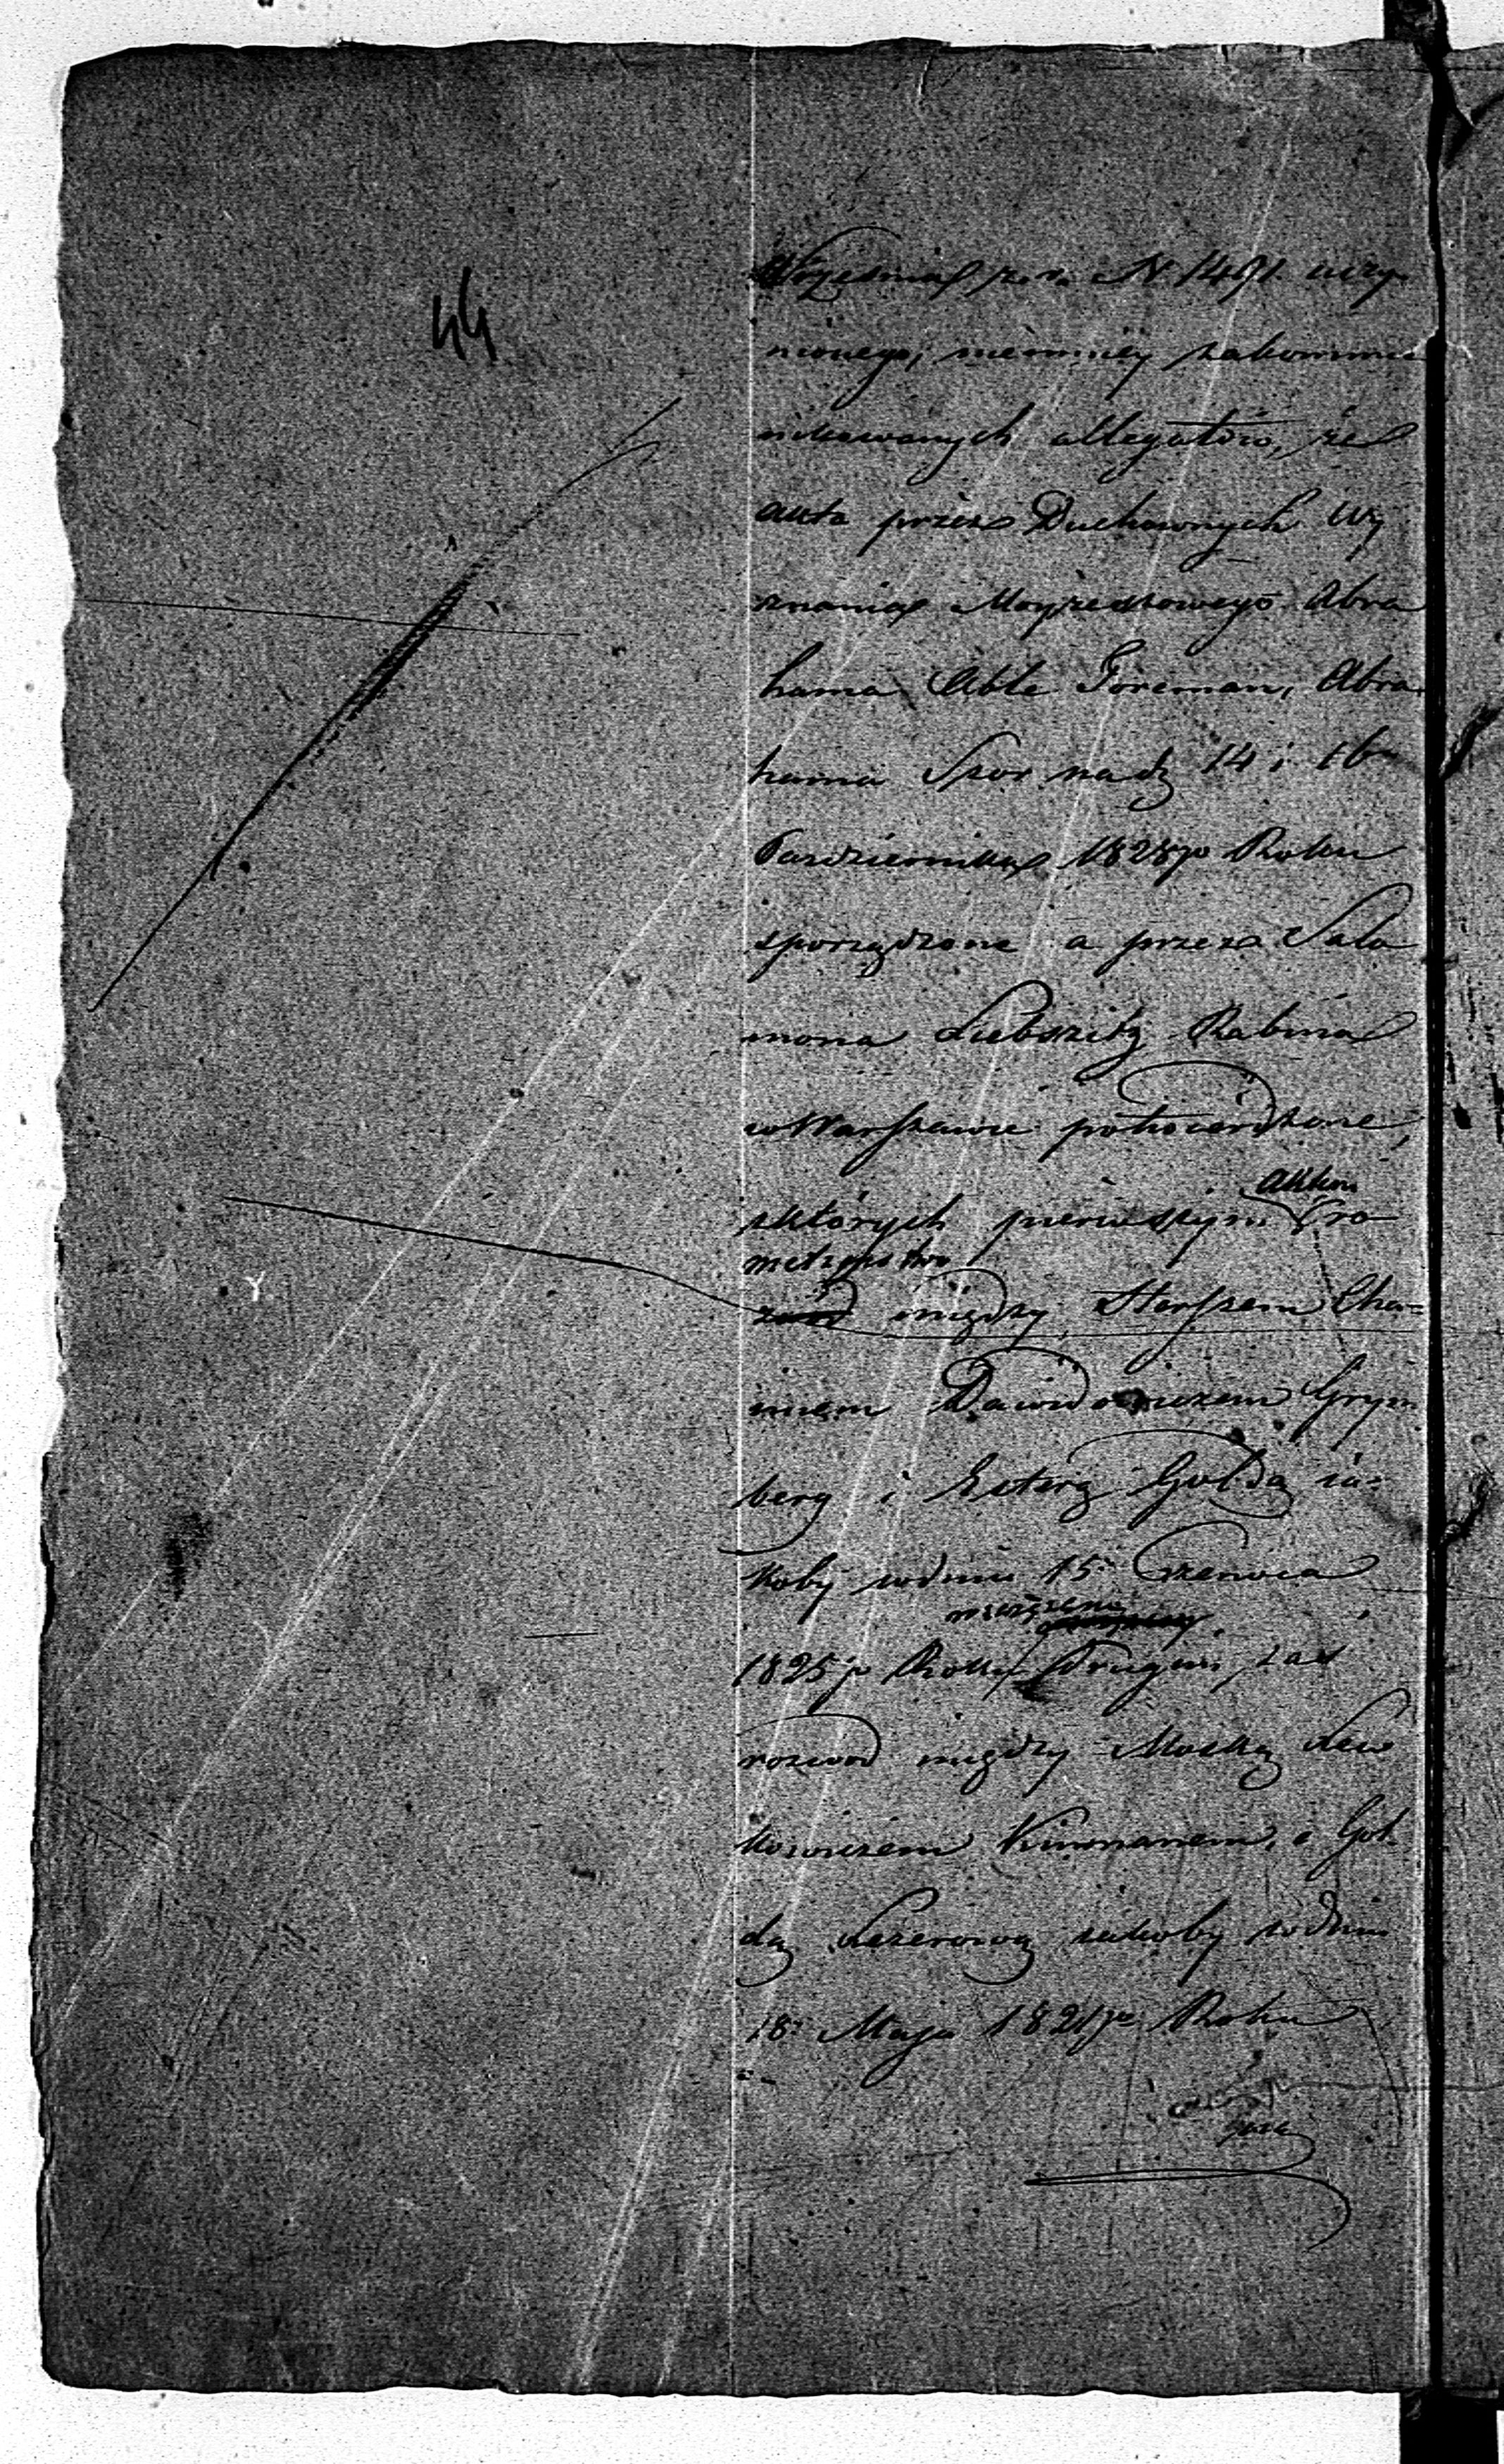 44
Września r. z. N. 1491 uczy
nionego, niemniey zakommu
nikowanych allegatów, że
akta przez Duchownych Wy
znania Moyżeszowego Abra
hama Able Foreman, Abra
hama Szor nadz 14 i 16
Października 1828go Roku
sporządzone a przez Salo
mona Lubszitz Rabina
w Warszawie potwierdzone,
z których pierwszym Aktem
małżeństwo
między Herszem Cha-
imem Dawidowiczem Gryn
berg i Esterą Goldą ia-
koby w dniu 15 Czerwca
1825go Roku drugim zaś
rozwód między Moszką Lew
kowiczem Kinmanem, i Gol
dą Lezerową iakoby w dniu
18 Maja 1821go Roku